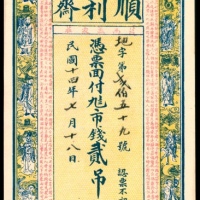 順利齋
認票不
地字第貳伯五十九號
憑票面付旭市錢貳吊
民國十四年七月十八日